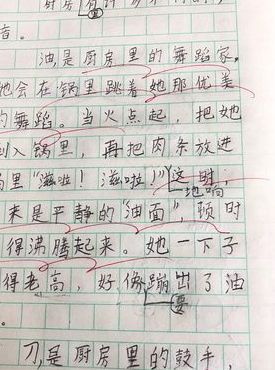 厨房
音。
油是厨房里的舞蹈家,
她会在锅里跳着她那优美
的舞蹈。当火点起,把她
倒入锅里,再把肉条放进
锅里“滋啦!滋啦!”这时,
地响
来是平静的“油面”,顿时
得沸腾起来。她一下子
得老高,好像蹦出了油
要
。
刀,是厨房里的鼓手,